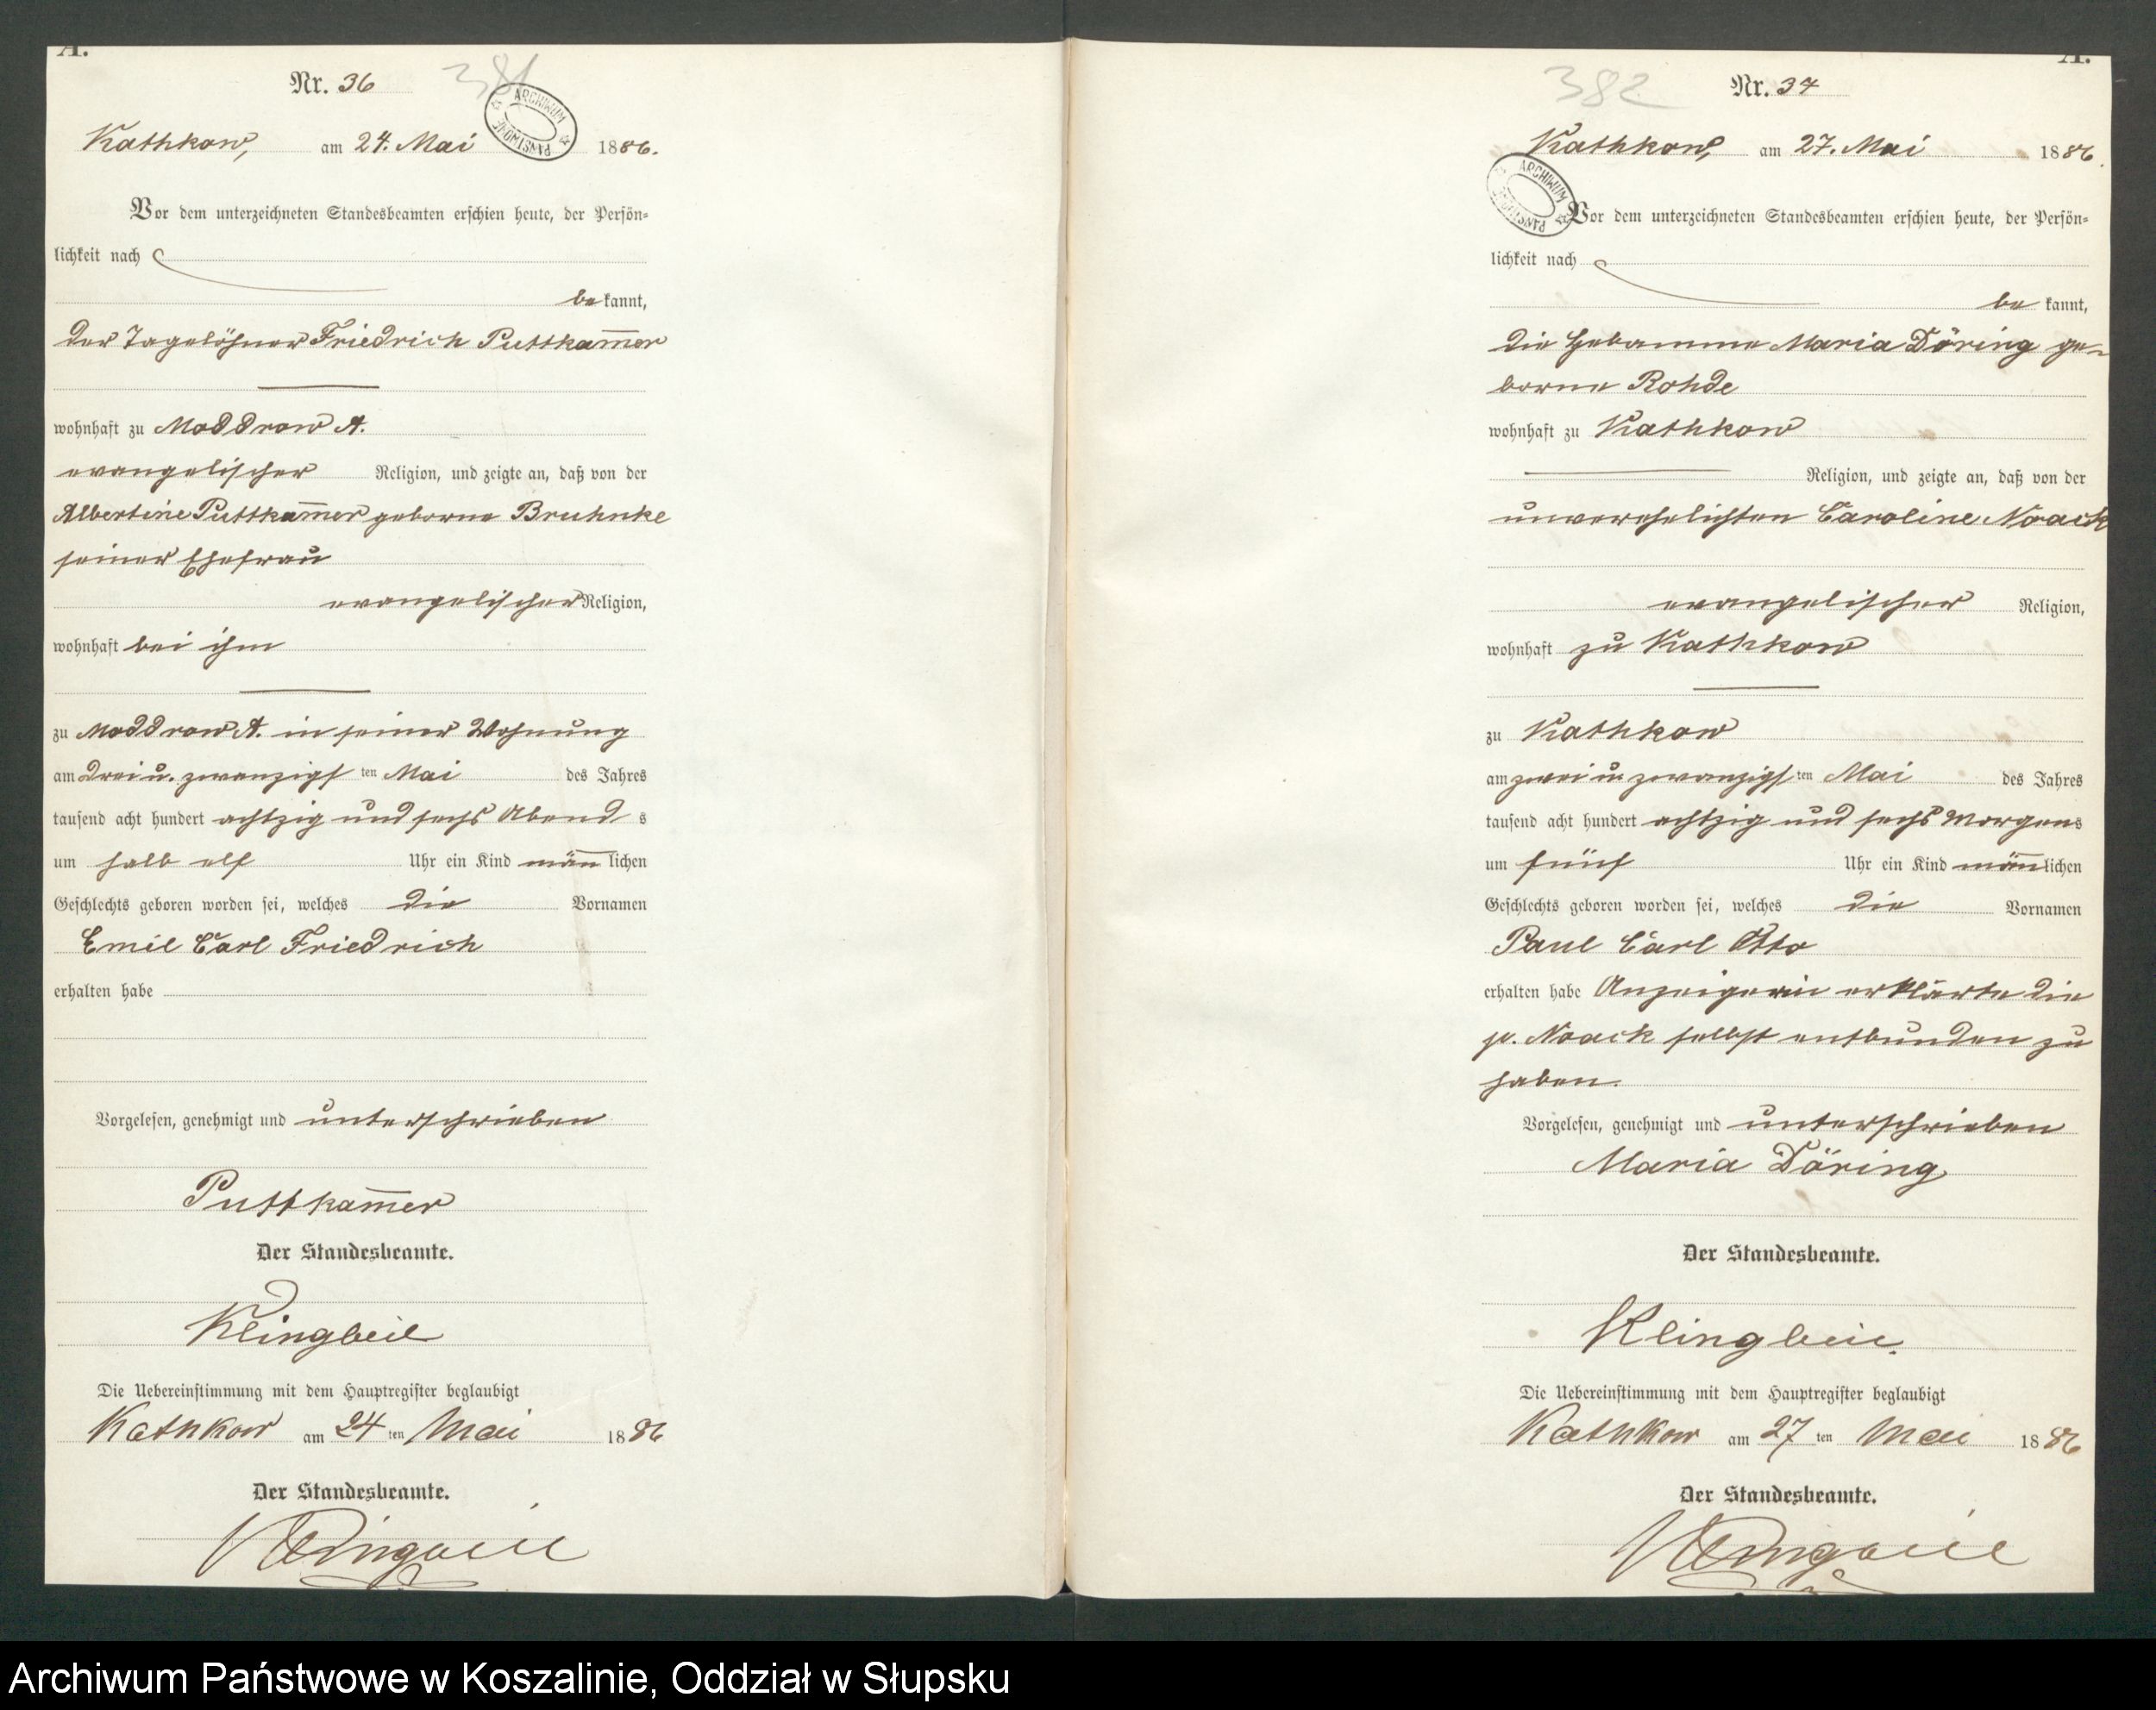 A.
Nr. 36
381
ARCHIWUM PAŃSTWOWE
Kathkow, am 24. Mai 1886.
Vor dem unterzeichneten Standesbeamten erschien heute, der Persön-
lichkeit nach
be kannt,
der Tagelöhner Friedrich Puttkam̅er
wohnhaft zu Moddrow A.
evangelischer Religion, und zeigte an, daß von der
Albertine Puttkam̅er geborne Bruhnke
seiner Ehefrau
evangelischer Religion,
wohnhaft bei ihm
zu Moddrow A. in seiner Wohnung
am drei u. zwanzigs ten Mai des Jahres
tausend acht hundert achtzig und sechs Abend s
um halb elf Uhr ein Kind män̅ lichen
Geschlechts geboren worden sei, welches die Vornamen
Emil Carl Friedrich
erhalten habe
Vorgelesen, genehmigt und unterschrieben
Puttkam̅er
Der Standesbeamte.
Klingbeil
Die Uebereinstimmung mit dem Hauptregister beglaubigt
Kathkow am 24 ten Mai 1886
Der Standesbeamte.
Klingbeil
A.
382
Nr. 37
Kathkow, am 27. Mai 1886.
ARCHIWUM PAŃSTWOWE
Vor dem unterzeichneten Standesbeamten erschien heute, der Persön-
lichkeit nach
be kannt,
die Hebamme Maria Döring ge-
borne Rohde
wohnhaft zu Kathkow
Religion, und zeigte an, daß von der
unverehelichten Caroline Noack
evangelischer Religion,
wohnhaft zu Kathkow
zu Kathkow
am zwei u. zwanzigs ten Mai des Jahres
tausend acht hundert achtzig und sechs Morgens
um fünf Uhr ein Kind män̅lichen
Geschlechts geboren worden sei, welches die Vornamen
Paul Carl Otto
erhalten habe Anzeigerin erklärte die
p. Noack selbst entbunden zu
haben.
Vorgelesen, genehmigt und unterschrieben
Maria Döring
Der Standesbeamte.
Klingbeil.
Die Uebereinstimmung mit dem Hauptregister beglaubigt
Kathkow am 27 ten Mai 1886
Der Standesbeamte.
Klingbeil
Archiwum Państwowe w Koszalinie, Oddział w Słupsku